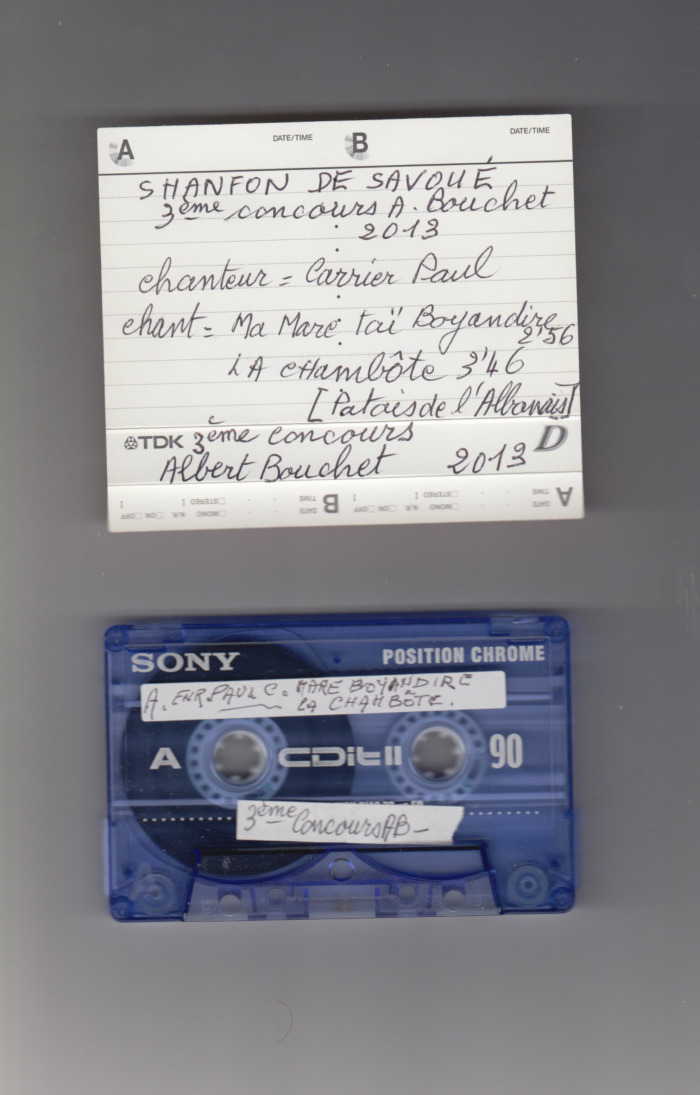 A DATE/TIME B DATE/TIME
SHANFON DE SAVOUÉ
3ème concours A. Bouchet
2013
chanteur = Carrier Paul
chant = Ma Mare taï Boyandire
2'56
LA CHambôte 3'46
[Patois de l'Albanais]
TDK 3ème concours D
Albert Bouchet 2013
A DATE TIME B DATE TIME
N.R. □ON □OFF □MONO □STEREO
SONY POSITION CHROME
A. ENR. PAUL C. MARE BOYANDIRE
LA CHAMBÔTE.
A CDit II 90
3ème Concours AB-